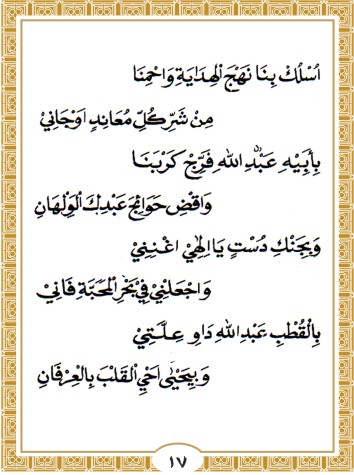 اُسْلُكْ بِنَا نَهْجَ الْهِدَايَةِ وَاحْمِنَا
مِنْ شَرِّ كُلِّ مُعَانِدٍ اَوْجَانِيْ
بِأَبِيْهِ عَبْدِ اللهِ فَرِّجْ كَرْبَنَا
وَاقْضِ حَوَائِجَ عَبْدِكَ الْوَلْهَانِ
وَبِجَنْكِ دُسْتٍ يَا اِلٰهِيْ اغْنِنِيْ
وَاجْعَلْنِيْ فِيْ بَحْرِ الْمَحَبَّةِ فَانِيْ
بِالْقُطْبِ عَبْدِ اللهِ دَاوِ عِلَّتِيْ
وَبِيَحْيٰى اَحْيِ الْقَلْبَ بِالْعِرْفَانِ
١٧